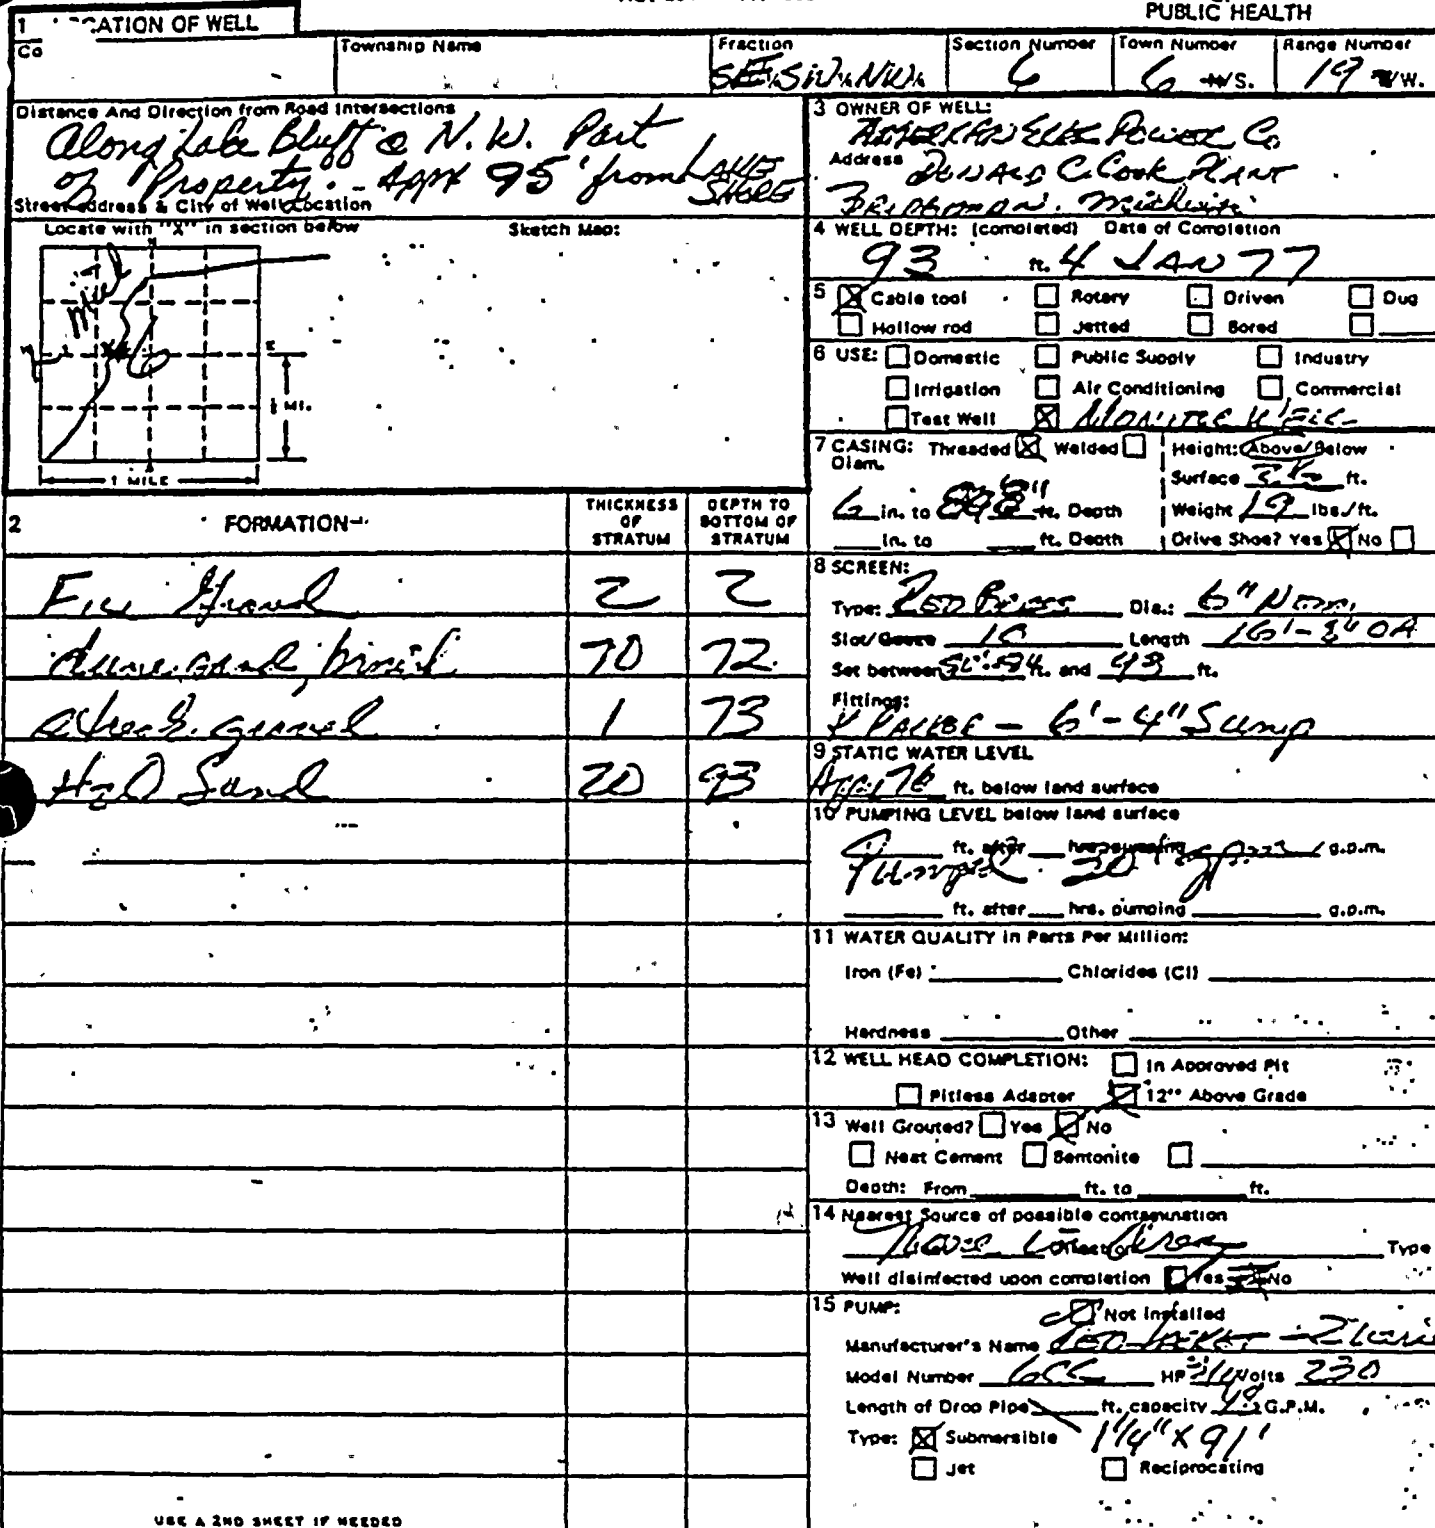 PUBLIC HEALTH
1 CATION OF WELL
Co
Township Name
Fraction
SE¼ SW¼ NW¼
Section Number
6
Town Number
6 N/S.
Range Number
19 E/W.
Distance And Direction from Road Intersections
Along Lake Bluff @ N.W. Part
of Property. - Appx 95' from LAKE
SHORE
Street address & City of Well Location
Locate with "X" in section below
Sketch Map:
½ MI.
1 MILE
2 FORMATION
THICKNESS OF STRATUM
DEPTH TO BOTTOM OF STRATUM
Gravel 2 2
dune sand, 70 72
gravel 1 73
H2O Sand 20 93
USE A 2ND SHEET IF NEEDED
3 OWNER OF WELL:
AMERICAN ELEC POWER Co
Address DONALD C. COOK PLANT
BRIDGMAN. Michigan
4 WELL DEPTH: (completed) Date of Completion
93 ft. 4 JAN 77
5 Cable tool Rotary Driven Dug
Hollow rod Jetted Bored
6 USE: Domestic Public Supply Industry
Irrigation Air Conditioning Commercial
Test Well MONITOR WELL
7 CASING: Threaded Welded
Diam.
6 in. to ft. Depth
in. to ft. Depth
Height: Above/Below
Surface ft.
Weight 19 lbs./ft.
Drive Shoe? Yes No
8 SCREEN:
Type: RED BRASS Dia.: 6" NOM.
Slot/Gauze 10 Length 16'-8" OA
Set between ft. and 93 ft.
Fittings:
K PACKER - 6'-4" Sump
9 STATIC WATER LEVEL
App. 76 ft. below land surface
10 PUMPING LEVEL below land surface
ft. after hrs. pumping g.p.m.
Pumped 20 gpm
ft. after hrs. pumping g.p.m.
11 WATER QUALITY in Parts Per Million:
Iron (Fe) Chlorides (Cl)
Hardness Other
12 WELL HEAD COMPLETION: In Approved Pit
Pitless Adapter 12" Above Grade
13 Well Grouted? Yes No
Neat Cement Bentonite
Depth: From ft. to ft.
14 Nearest Source of possible contamination
None in Area Type
Well disinfected upon completion Yes No
15 PUMP:
Not Installed
Manufacturer's Name RED JACKET
Model Number HP 3/4 Volts 230
Length of Drop Pipe ft. capacity G.P.M.
Type: Submersible 1¼" X 91'
Jet Reciprocating